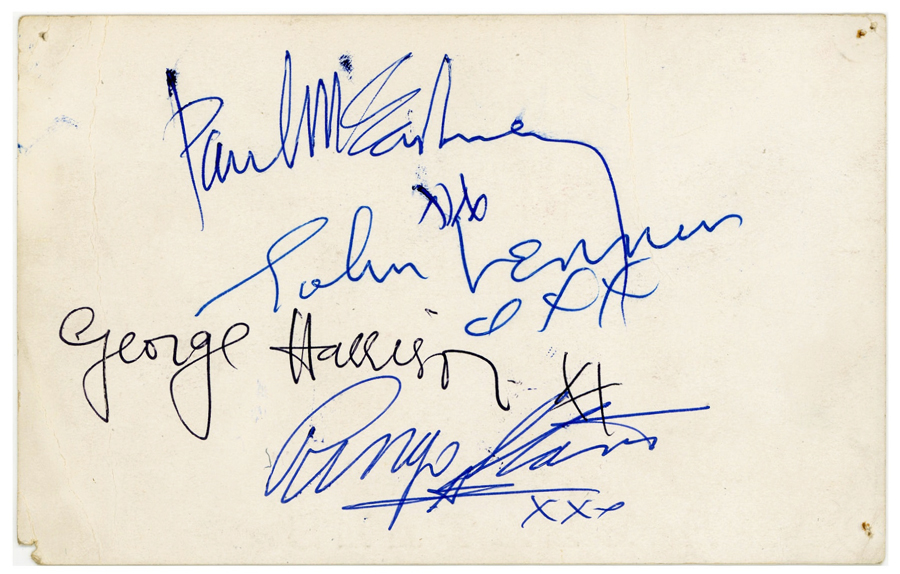 Paul McCartney
xxx
John Lennon
xxx
George Harrison
xx
Ringo Starr
xxx